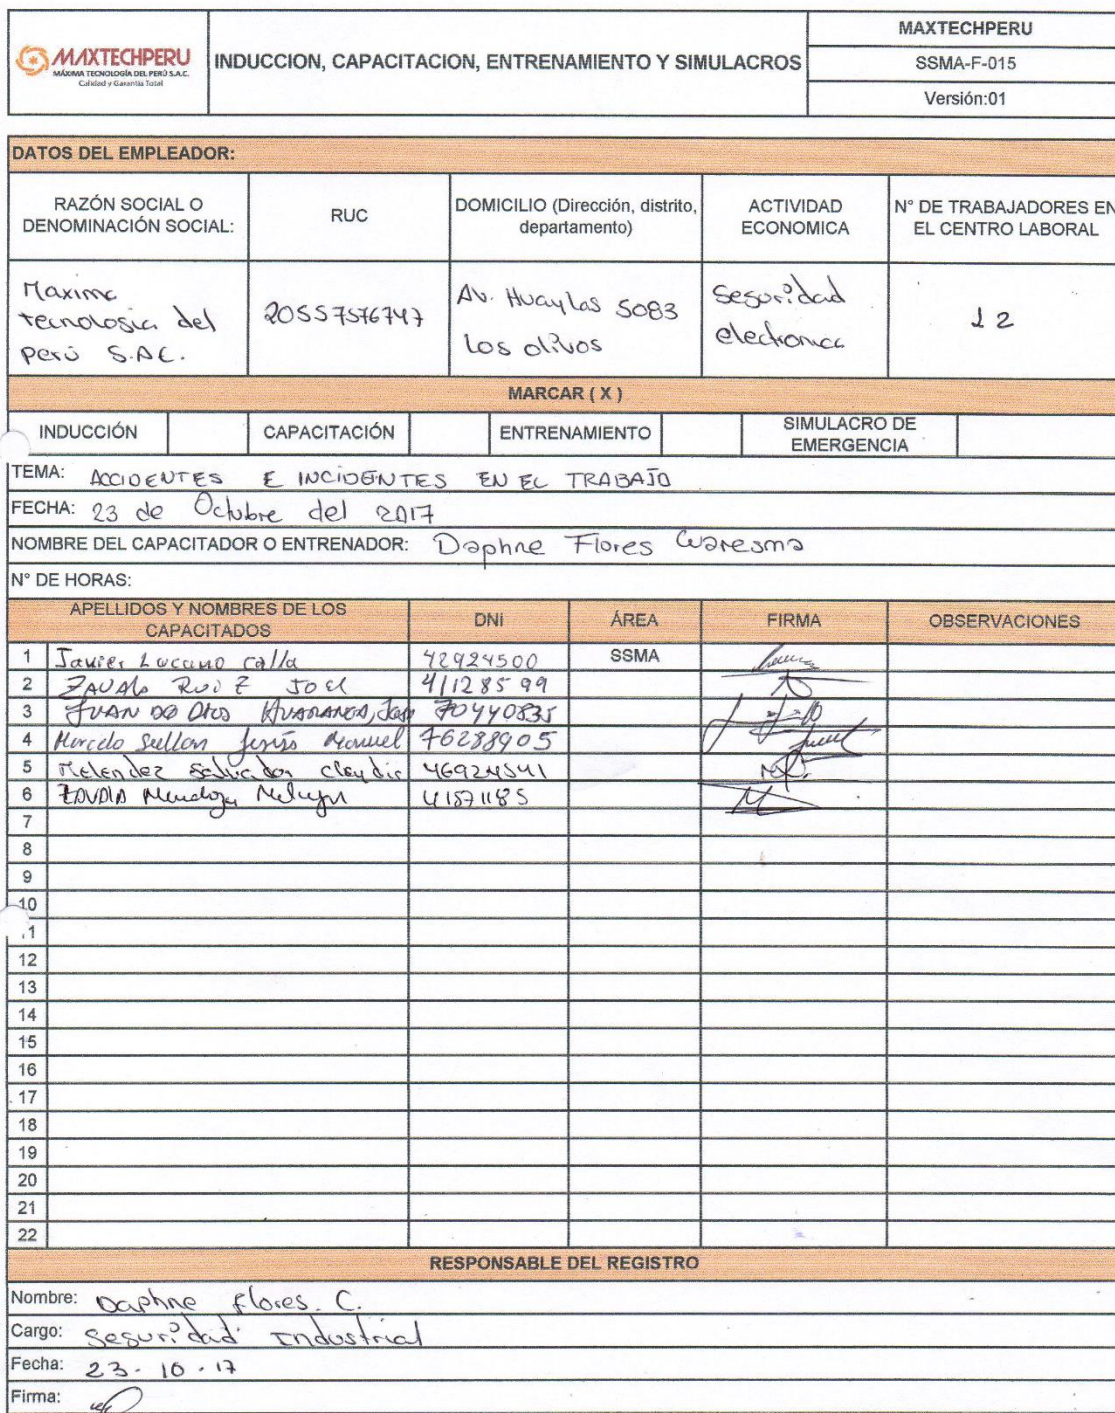 MAXTECHPERU
MÁXIMA TECNOLOGÍA DEL PERÚ S.A.C.
Calidad y Garantía Total
INDUCCION, CAPACITACION, ENTRENAMIENTO Y SIMULACROS
MAXTECHPERU
SSMA-F-015
Versión:01
DATOS DEL EMPLEADOR:
RAZÓN SOCIAL O DENOMINACIÓN SOCIAL:
RUC
DOMICILIO (Dirección, distrito, departamento)
ACTIVIDAD ECONOMICA
N° DE TRABAJADORES EN EL CENTRO LABORAL
Maxima tecnologia del perú S.A.C.
20557576747
Av. Huaylas 5083 Los olivos
Seguridad electronica
12
MARCAR ( X )
INDUCCIÓN CAPACITACIÓN ENTRENAMIENTO SIMULACRO DE EMERGENCIA
TEMA: ACCIDENTES E INCIDENTES EN EL TRABAJO
FECHA: 23 de Octubre del 2017
NOMBRE DEL CAPACITADOR O ENTRENADOR: Daphne Flores Cuaresma
N° DE HORAS:
APELLIDOS Y NOMBRES DE LOS CAPACITADOS DNI ÁREA FIRMA OBSERVACIONES
1 Javier Lucano Calla 42924500 SSMA
2 ZAVALA RUIZ JOEL 41128599
3 JUAN DE DIOS HUARANGA, 70440835
4 Marcelo Sullon Jesús Manuel 76288905
5 Melendez Salvador Claudia 46924541
6 ZAVALA Mendoza Melvyn 41571185
7
8
9
10
11
12
13
14
15
16
17
18
19
20
21
22
RESPONSABLE DEL REGISTRO
Nombre: Daphne Flores. C.
Cargo: Seguridad Industrial
Fecha: 23-10-17
Firma: